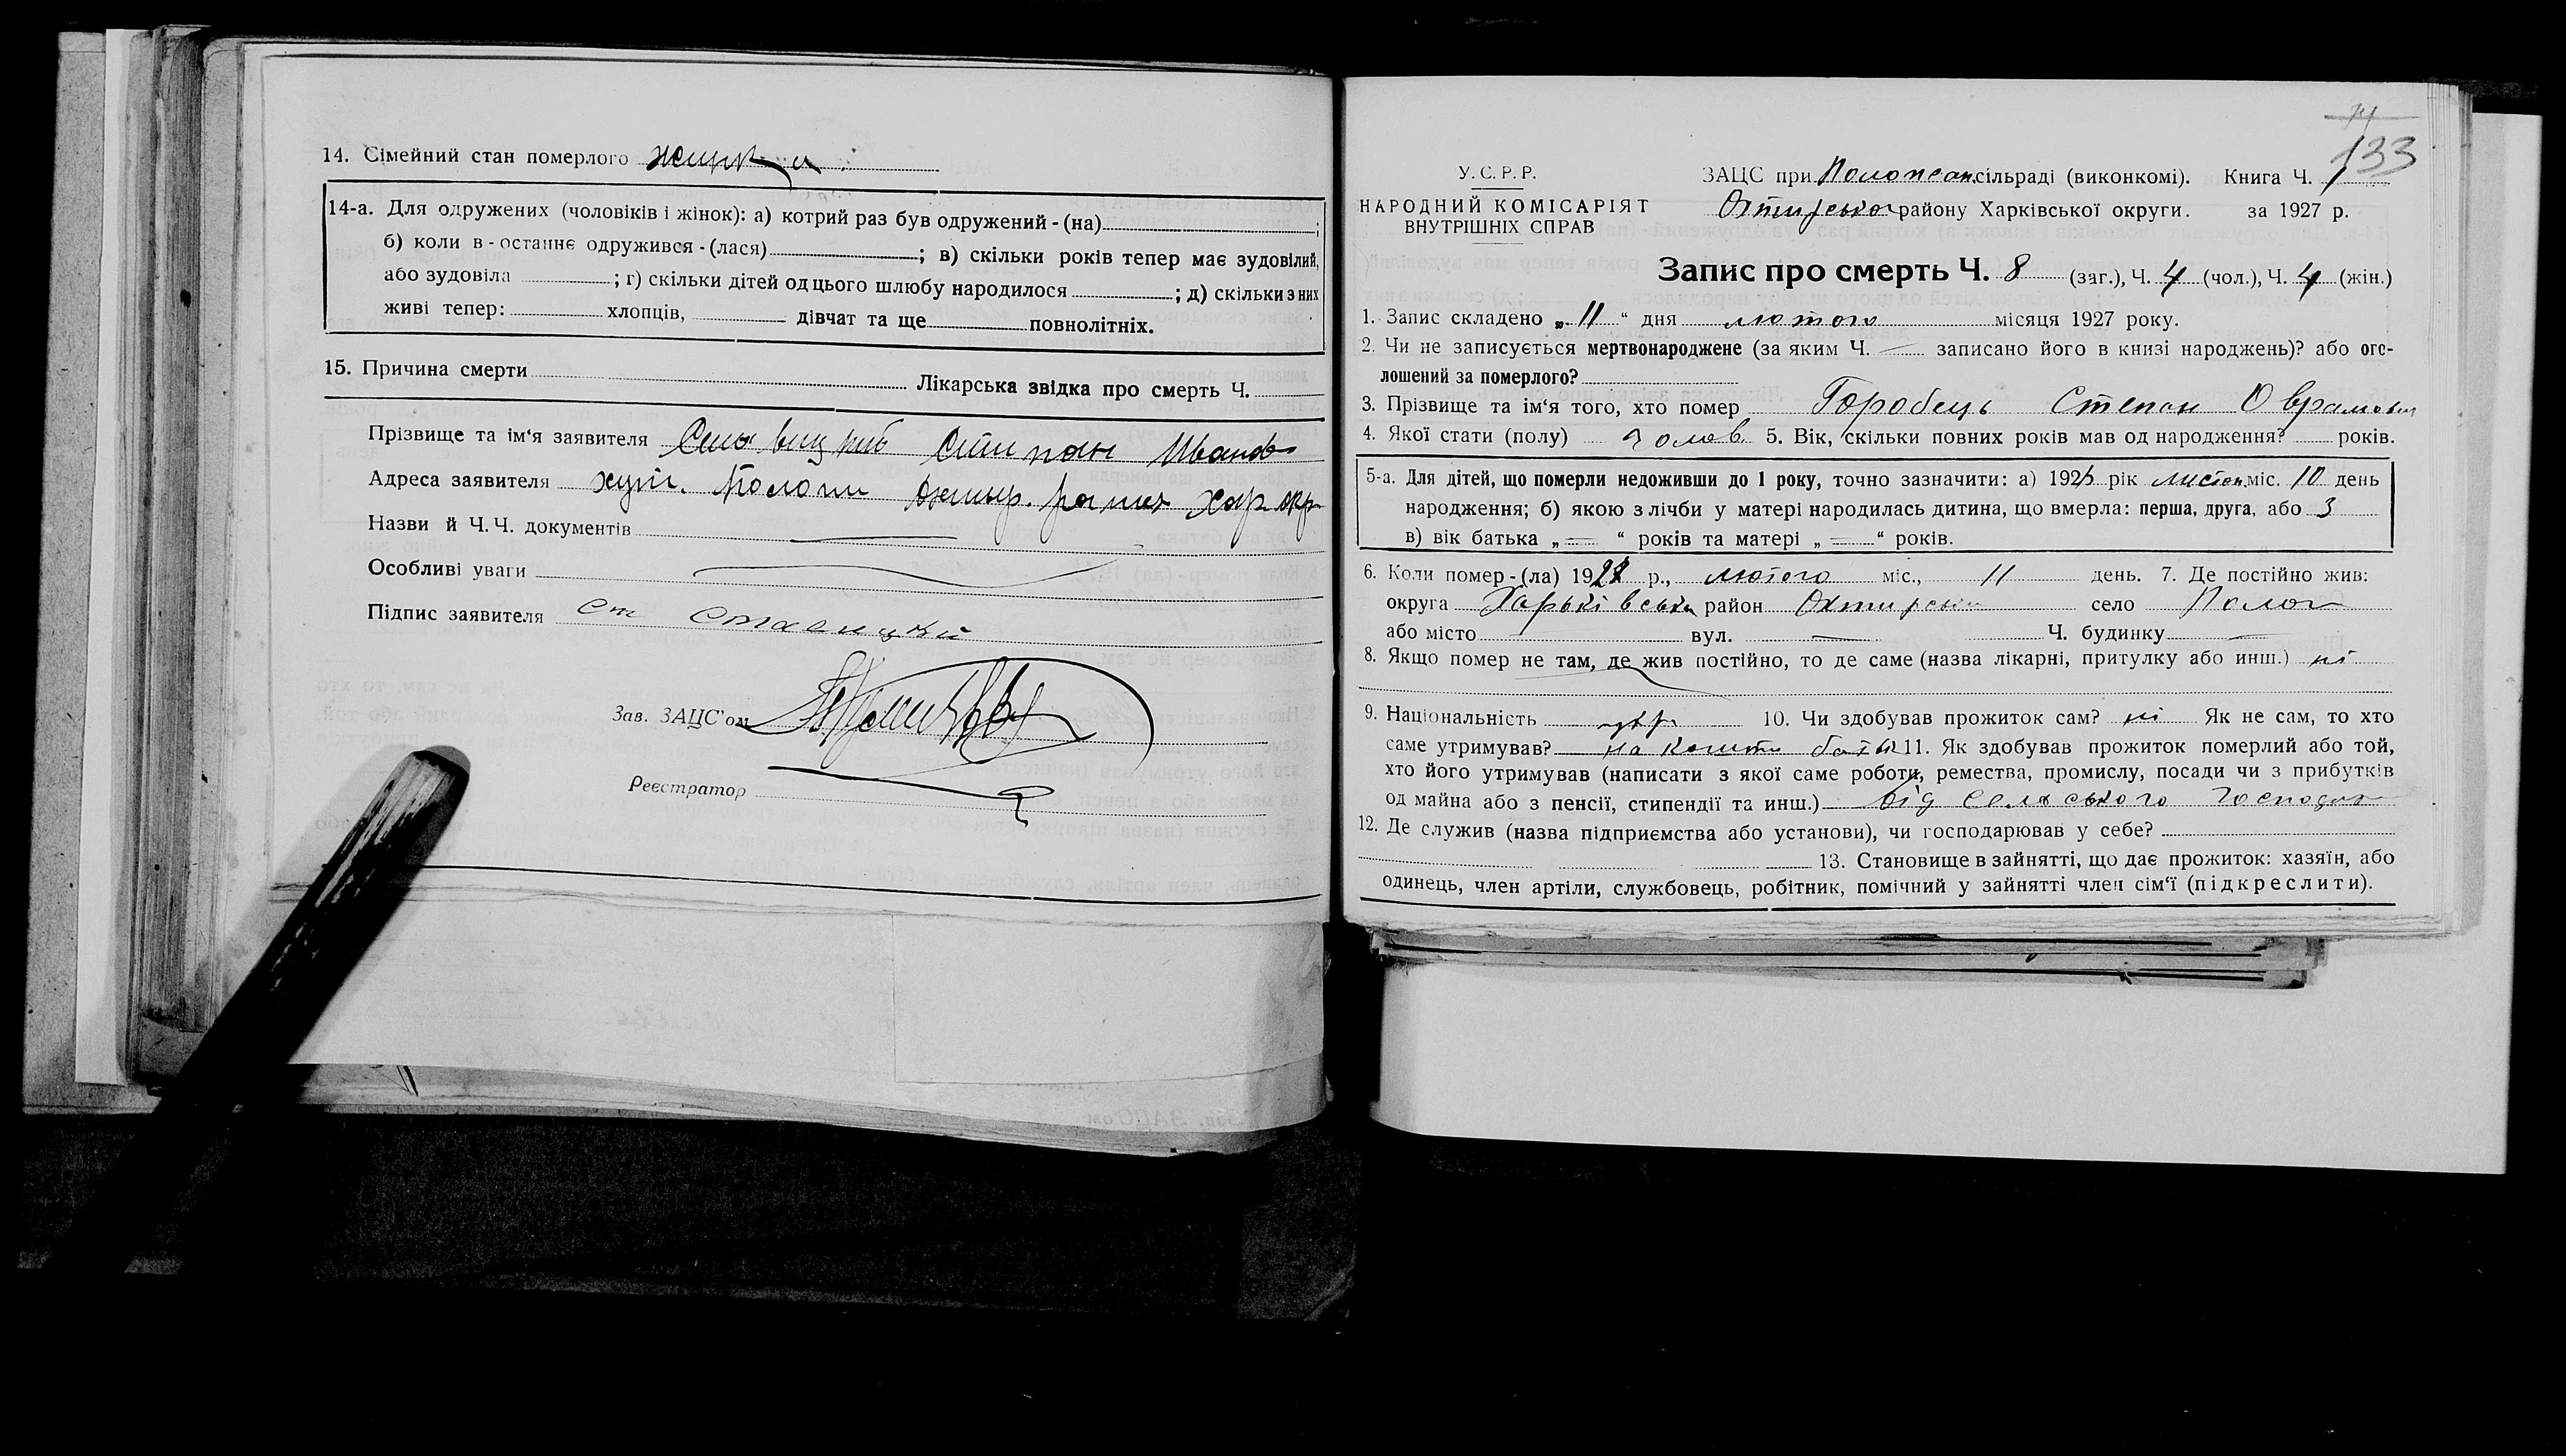 14. Сімейний стан померлого
14-а. Для одружених (чоловіків і жінок): а) котрий раз був одружений - (на) ;
б) коли в - останнє одружився - (лася) ; в) скільки років тепер має зудовілий,
або зудовіла ; г) скільки дітей од цього шлюбу народилося ; д) скільки з них
живі тепер: хлопців, дівчат та ще повнолітніх.
15. Причина смерти Лікарська звідка про смерть Ч.
Прізвище та ім'я заявителя Степан Иванов
Адреса заявителя хут. Пологи Охтир. району Хар окр
Назви й Ч.Ч. документів —
Особливі уваги
Підпис заявителя Ст
Зав. ЗАЦС'ом
Реєстратор
133
У.С.Р.Р.
НАРОДНИЙ КОМІСАРІЯТ
ВНУТРІШНІХ СПРАВ
ЗАЦС при сільраді (виконкомі). Книга Ч. 1
Охтирсько району Харківської округи. за 1927 р.
Запис про смерть Ч. 8 (заг.), Ч. 4 (чол.), Ч. 4 (жін.)
1. Запис складено „ 11 “ дня лютого місяця 1927 року.
2. Чи не записується мертвонароджене (за яким Ч. — записано його в книзі народжень)? або ого-
лошений за померлого?
3. Прізвище та ім'я того, хто помер Горобець Степан Оврамович
4. Якої стати (полу) чолов 5. Вік, скільки повних років мав од народження? років.
5-а. Для дітей, що померли недоживши до 1 року, точно зазначити: а) 192 рік листоп. міс. 10 день
народження; б) якою з лічби у матері народилась дитина, що вмерла: перша, друга, або 3
в) вік батька „ — “ років та матері „ — “ років.
6. Коли помер - (ла) 192 р., лютого міс., 11 день. 7. Де постійно жив:
округа Харьківська район Охтирськи село Полог
або місто — вул. — Ч. будинку —
8. Якщо помер не там, де жив постійно, то де саме (назва лікарні, притулку або инш.) ні
9. Національність укр. 10. Чи здобував прожиток сам? ні Як не сам, то хто
саме утримував? на кошти батьк 11. Як здобував прожиток померлий або той,
хто його утримував (написати з якої саме роботи, ремества, промислу, посади чи з прибутків
од майна або з пенсії, стипендії та инш.) від сельського господар
12. Де служив (назва підприємства або установи), чи господарював у себе?
13. Становище в зайнятті, що дає прожиток: хазяїн, або
одинець, член артіли, службовець, робітник, помічний у зайнятті член сім'ї (підкреслити).